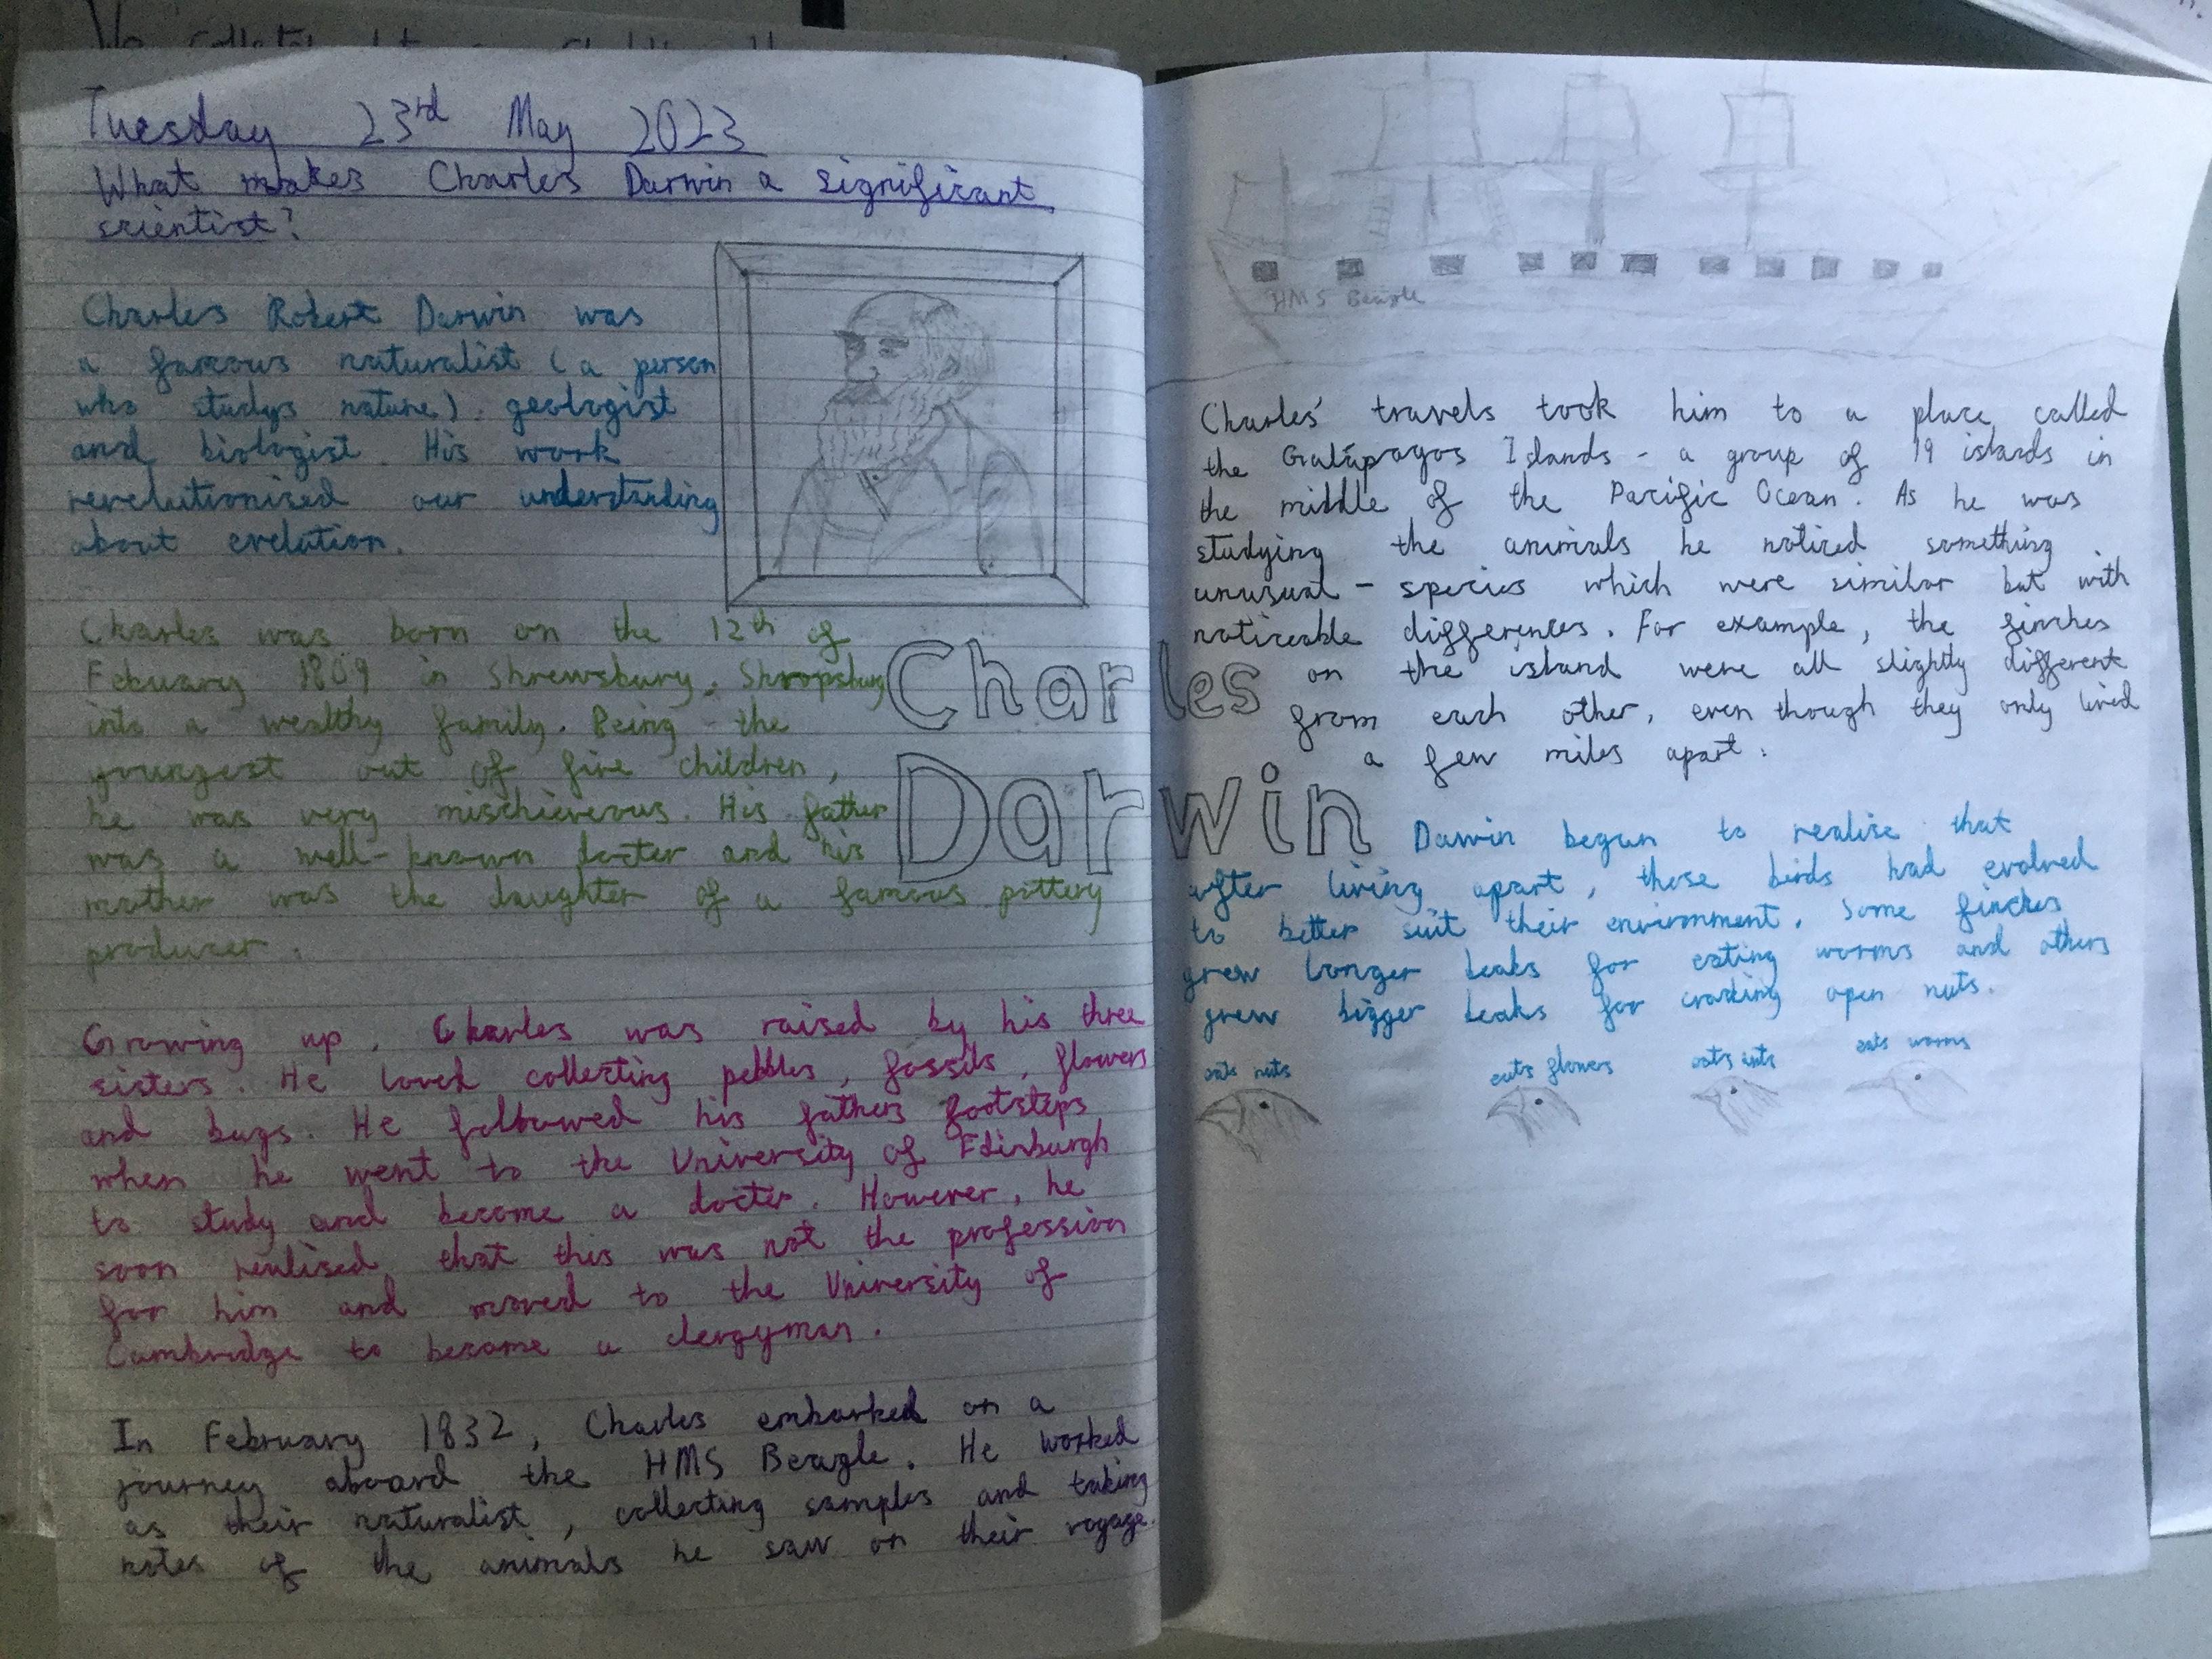 Tuesday 23rd May 2023
What makes Charles Darwin a significant
scientist?
Charles Robert Darwin was
a famous naturalist (a person
who studys nature), geologist
and biologist. His work
revolutionised our understanding
about evolution.
Charles was born on the 12th of
Febuary 1809 in Shrewsbury, Shropsbury
into a wealthy family. Being the
youngest out of five children,
he was very mischieveous. His father
was a well-known docter and his
mother was the daughter of a famous pottery
producer.
Growing up, Charles was raised by his three
sisters. He loved collecting pebbles, fossils, flowers
and bugs. He followed his fathers footsteps
when he went to the University of Edinburgh
to study and become a docter. However, he
soon realised that this was not the profession
for him and moved to the University of
Cambridge to become a clergyman.
In February 1832, Charles embarked on a
journey aboard the HMS Beagle. He worked
as their naturalist, collecting samples and taking
notes of the animals he saw on their voyage.
Charles
Darwin
HMS Beagle
Charles' travels took him to a place called
the Galápagos Islands - a group of 19 islands in
the middle of the Pacific Ocean. As he was
studying the animals he noticed something
unusual - species which were similar but with
noticeable differences. For example, the finches
on the island were all slightly different
from each other, even though they only lived
a few miles apart.
Darwin began to realise that
after living apart, these birds had evolved
to better suit their environment. Some finches
grew longer beaks for eating worms and others
grew bigger beaks for cracking open nuts.
eats nuts
eats flowers
eats worms